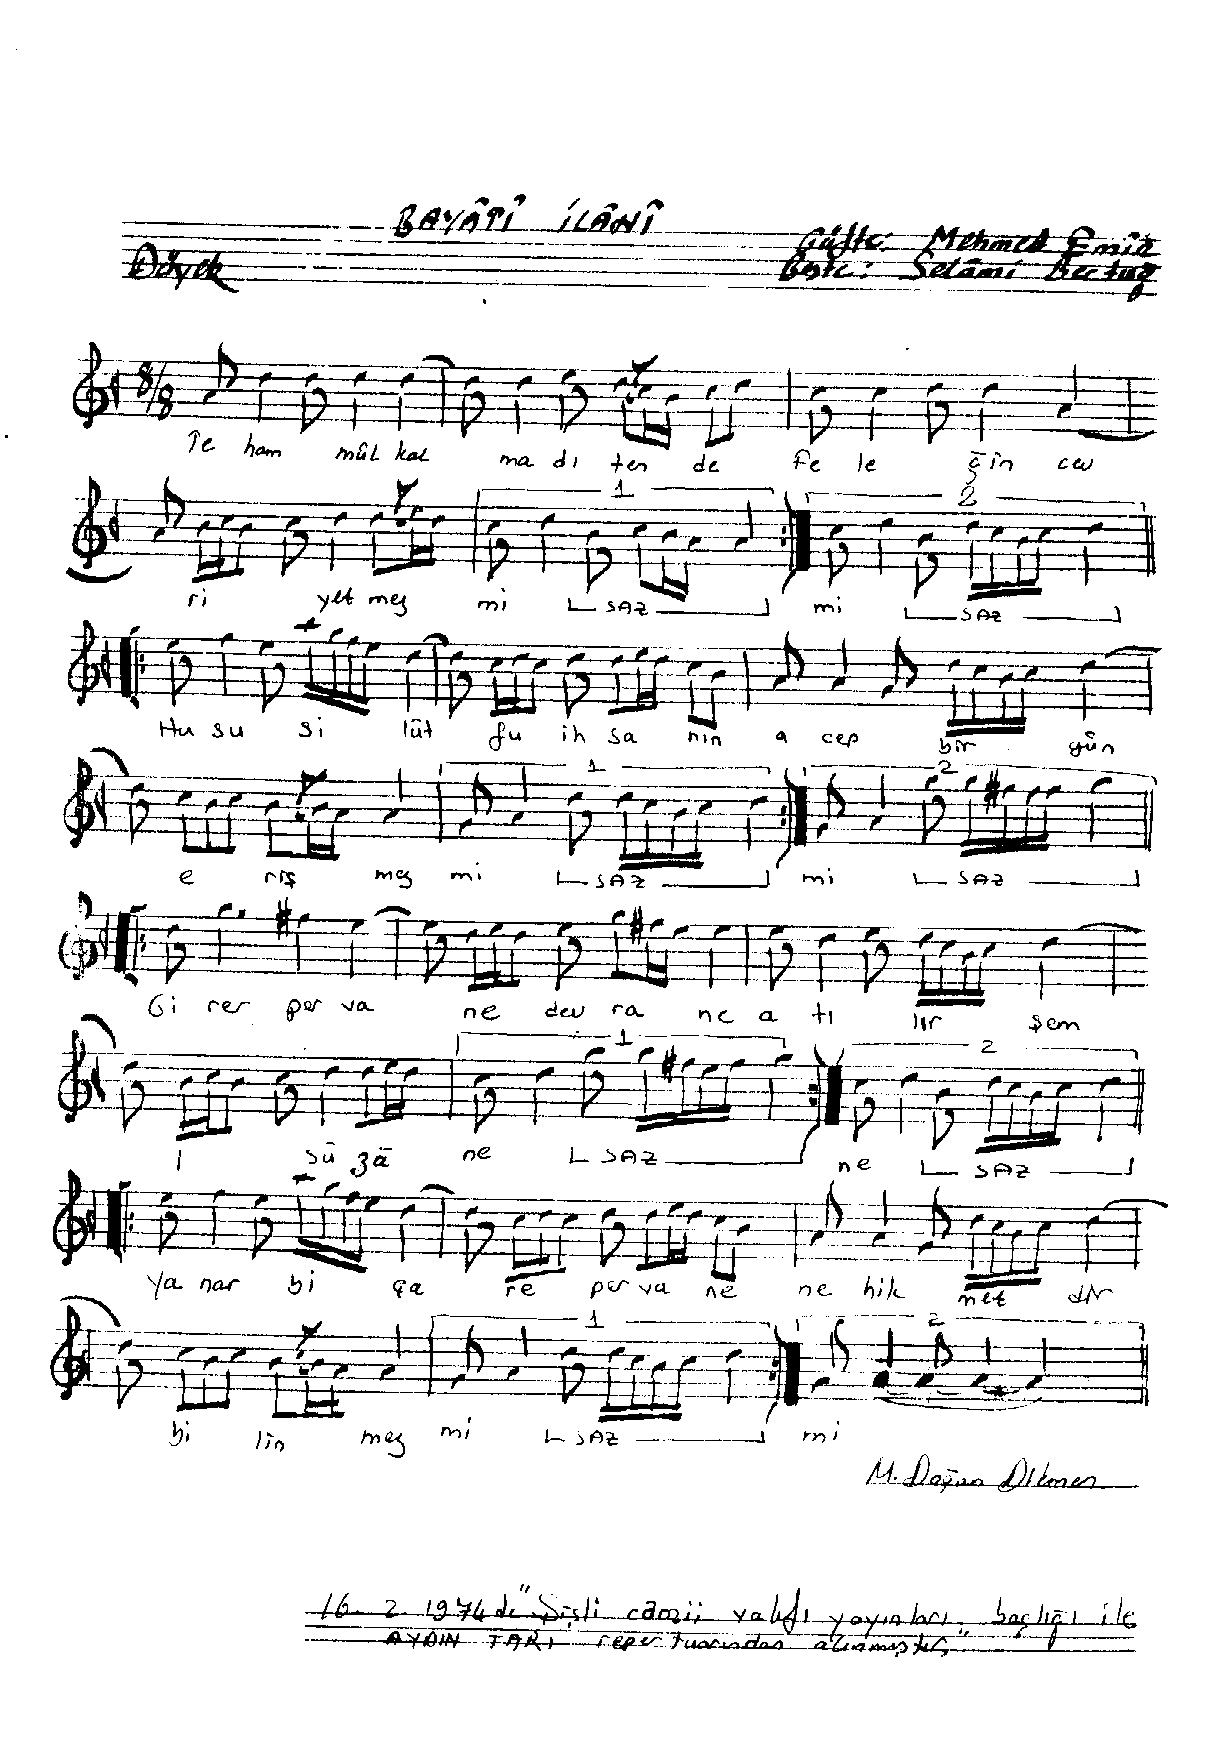 BAYÂTÎ İLÂHÎ
Güfte: Mehmed Emin
Düyek
Beste: Selâmi Bertuğ
8/8
Te ham mül kal ma dı ten de fe le ğin cev
1 2
ri yet mez mi SAZ mi SAZ
Hu su si lüt fu ih sa nın a cep bir gün
1 2
e riş mez mi SAZ mi SAZ
Gi rer per va ne dev ra ne a tı lır şem
1 2
i sü zâ ne SAZ ne SAZ
Ya nar bi ça re per va ne ne hik met dir
1 2
bi lin mez mi SAZ mi
M. Doğan Dikmen
16. 2. 1974 de "Şişli câmii vakfı yayınları başlığı ile
AYDIN TARI repertuarından alınmıştır"